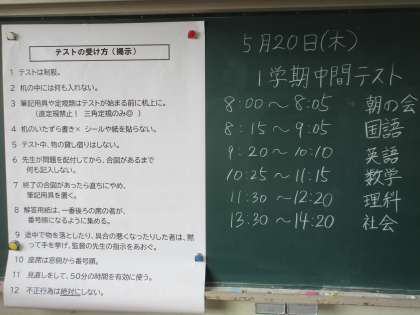 テストの受け方(掲示)
1 テストは制服。
2 机の中には何も入れない。
3 筆記用具や定規類はテストが始まる前に机上に。
(直定規禁止! 三角定規のみ◎)
4 机のいたずら書き× シールや紙を貼らない。
5 テスト中、物の貸し借りはしない。
6 先生が問題を配付してから、合図があるまで
何も記入しない。
7 終了の合図があったら直ちにやめ、
筆記用具を置く。
8 解答用紙は、一番後ろの席の者が、
番号順になるように集める。
9 途中で物を落としたり、具合の悪くなったりした者は、黙
って手を挙げ、監督の先生の指示をあおぐ。
10 座席は窓側から番号順。
11 見直しをして、50分の時間を有効に使う。
12 不正行為は絶対にしない。
5月20日(木)
1学期中間テスト
8:00〜8:05 朝の会
8:15〜9:05 国語
9:20〜10:10 英語
10:25〜11:15 数学
11:30〜12:20 理科
13:30〜14:20 社会